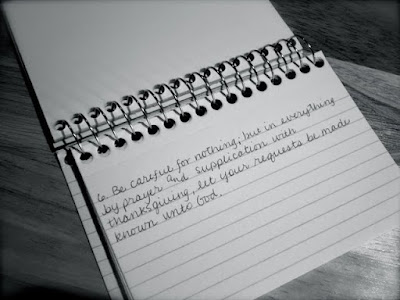 6 Be careful for nothing; but in everything
by prayer and supplication with
thanksgiving, let your requests be made
known unto God.